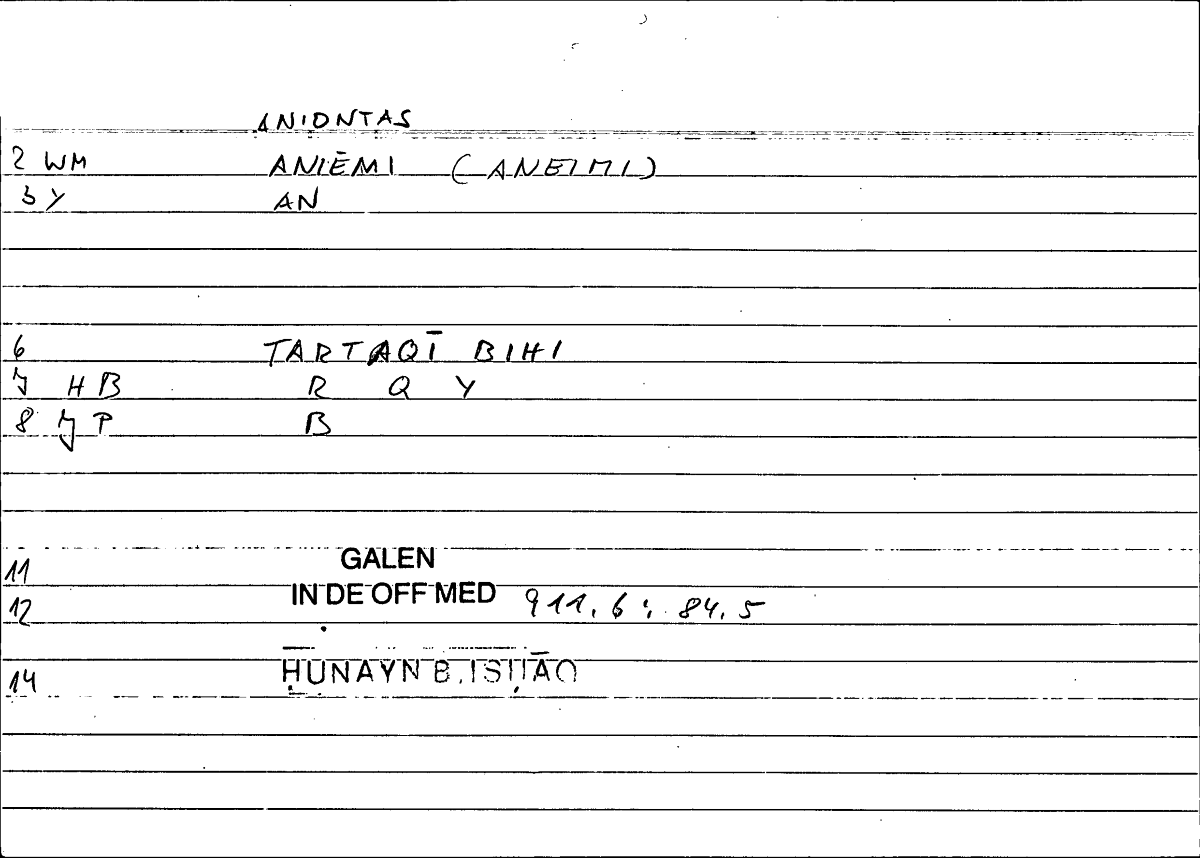 ANIONTAS
2 WM ANIĒMI (ANEIMI)
3 Y AN
6 TARTAQĪ BIHI
7 HB R Q Y
8 7 P B
11 GALEN
12 IN DE OFF MED 911.6 : 84.5
14 ḤUNAYN B. ISḤĀQ